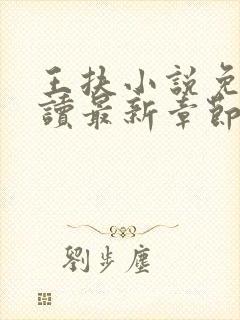 王扶小說免
讀最新章節
劉步塵